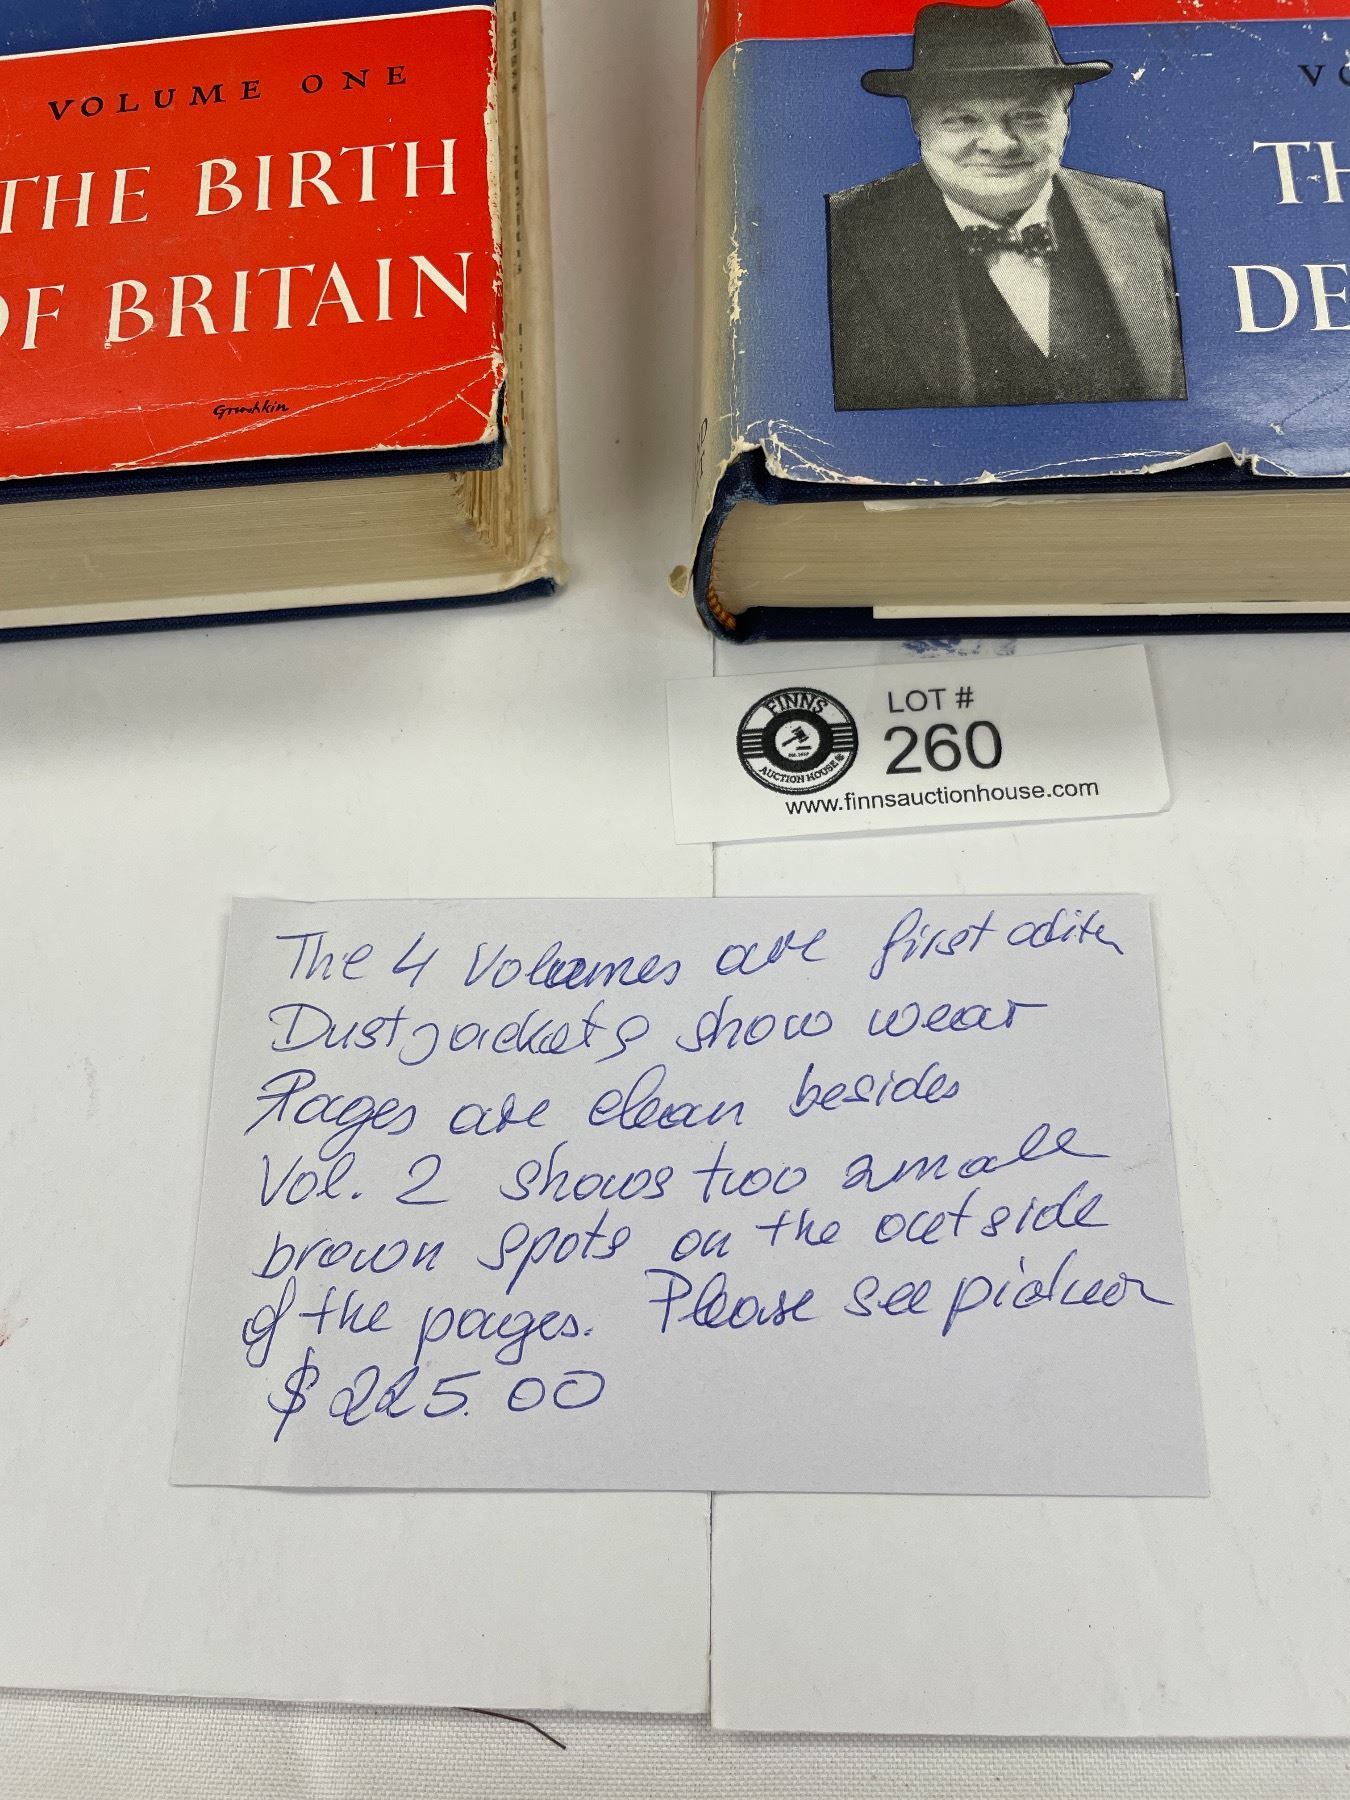 VOLUME ONE
THE BIRTH
OF BRITAIN
Grushkin
VO
TH
DE
FINNS
AUCTION HOUSE
LOT #
260
www.finnsauctionhouse.com
The 4 Volumes are first editen
Dustjackets show wear
Pages are clean besides
Vol. 2 shows two small
brown spots on the outside
of the pages. Please see picture
$225.00